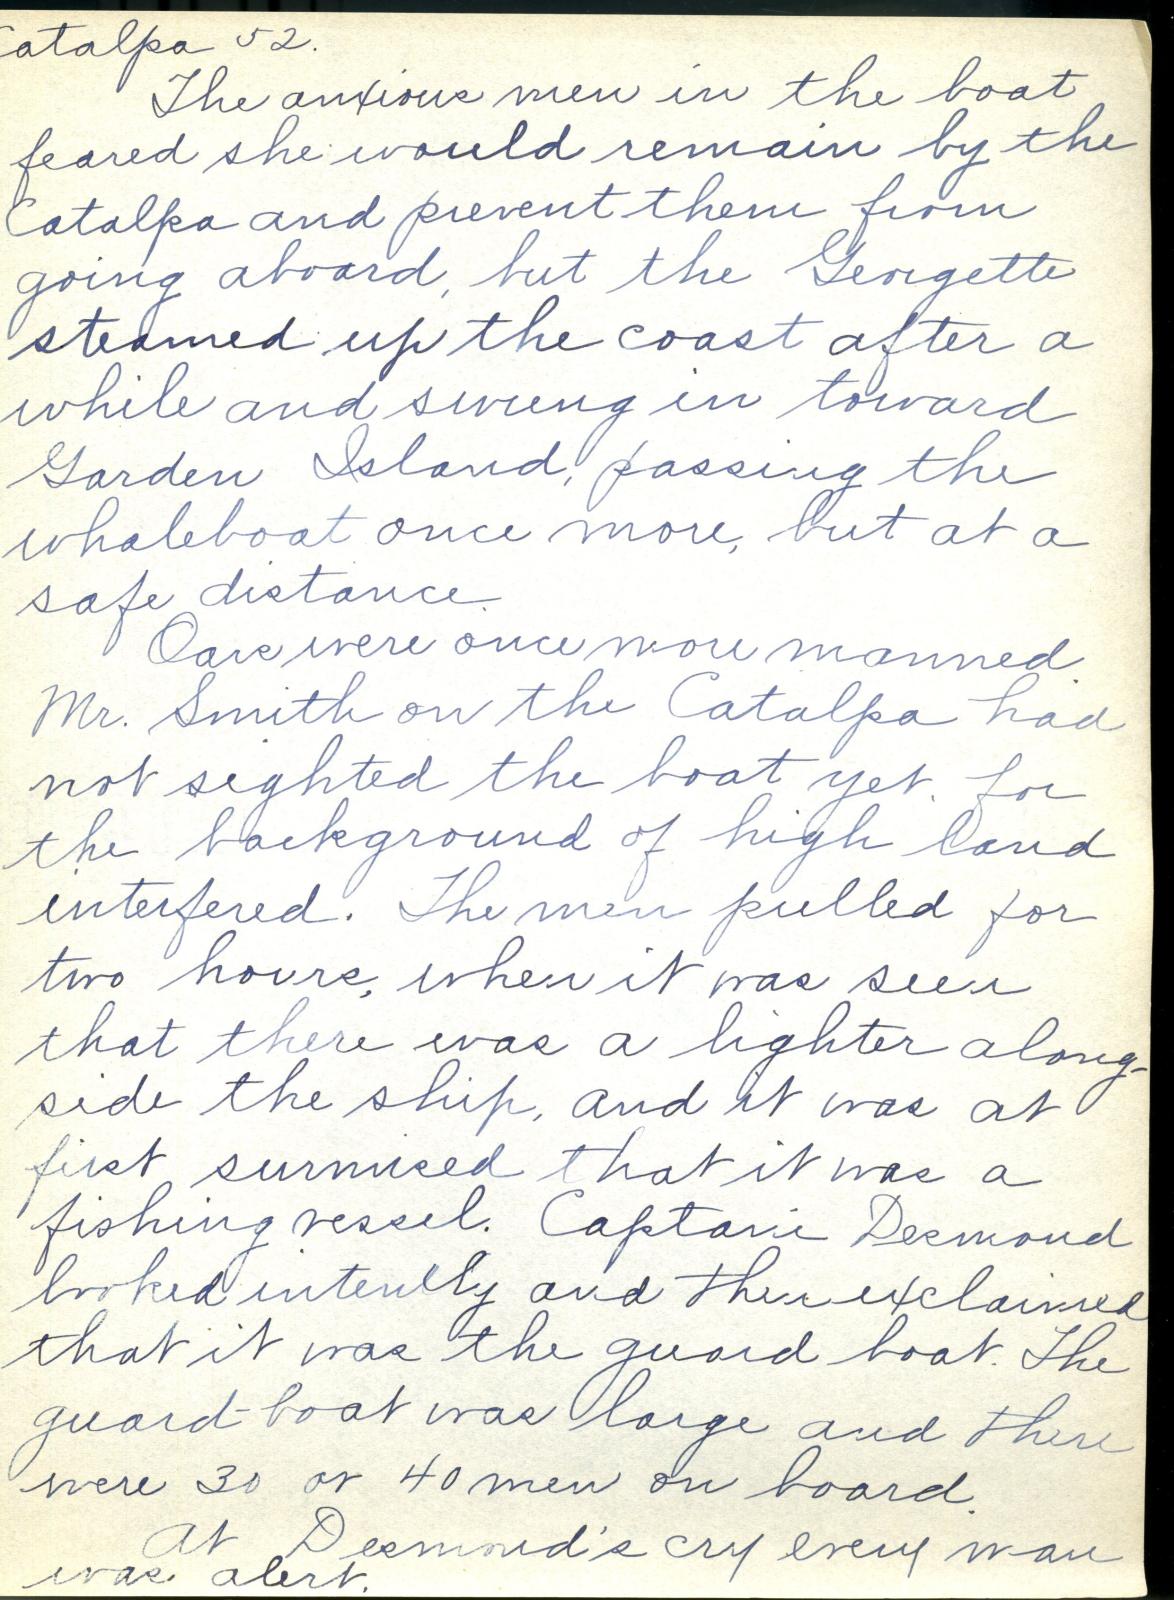 Catalpa 52.
The anxious men in the boat
feared she would remain by the
Catalpa and prevent them from
going aboard, but the Georgette
steamed up the coast after a
while and swung in toward
Garden Island, passing the
whaleboat once more, but at a
safe distance.
Oars were once more manned.
Mr. Smith on the Catalpa had
not sighted the boat yet. for
the background of high land
interfered. The men pulled for
two hours, when it was seen
that there was a lighter along-
side the ship, and it was at
first surmised that it was a
fishing vessel. Captain Desmond
looked intently and then exclaimed
that it was the guard boat. The
guard-boat was large and there
were 30 or 40 men on board.
At Desmond's cry every man
was alert.